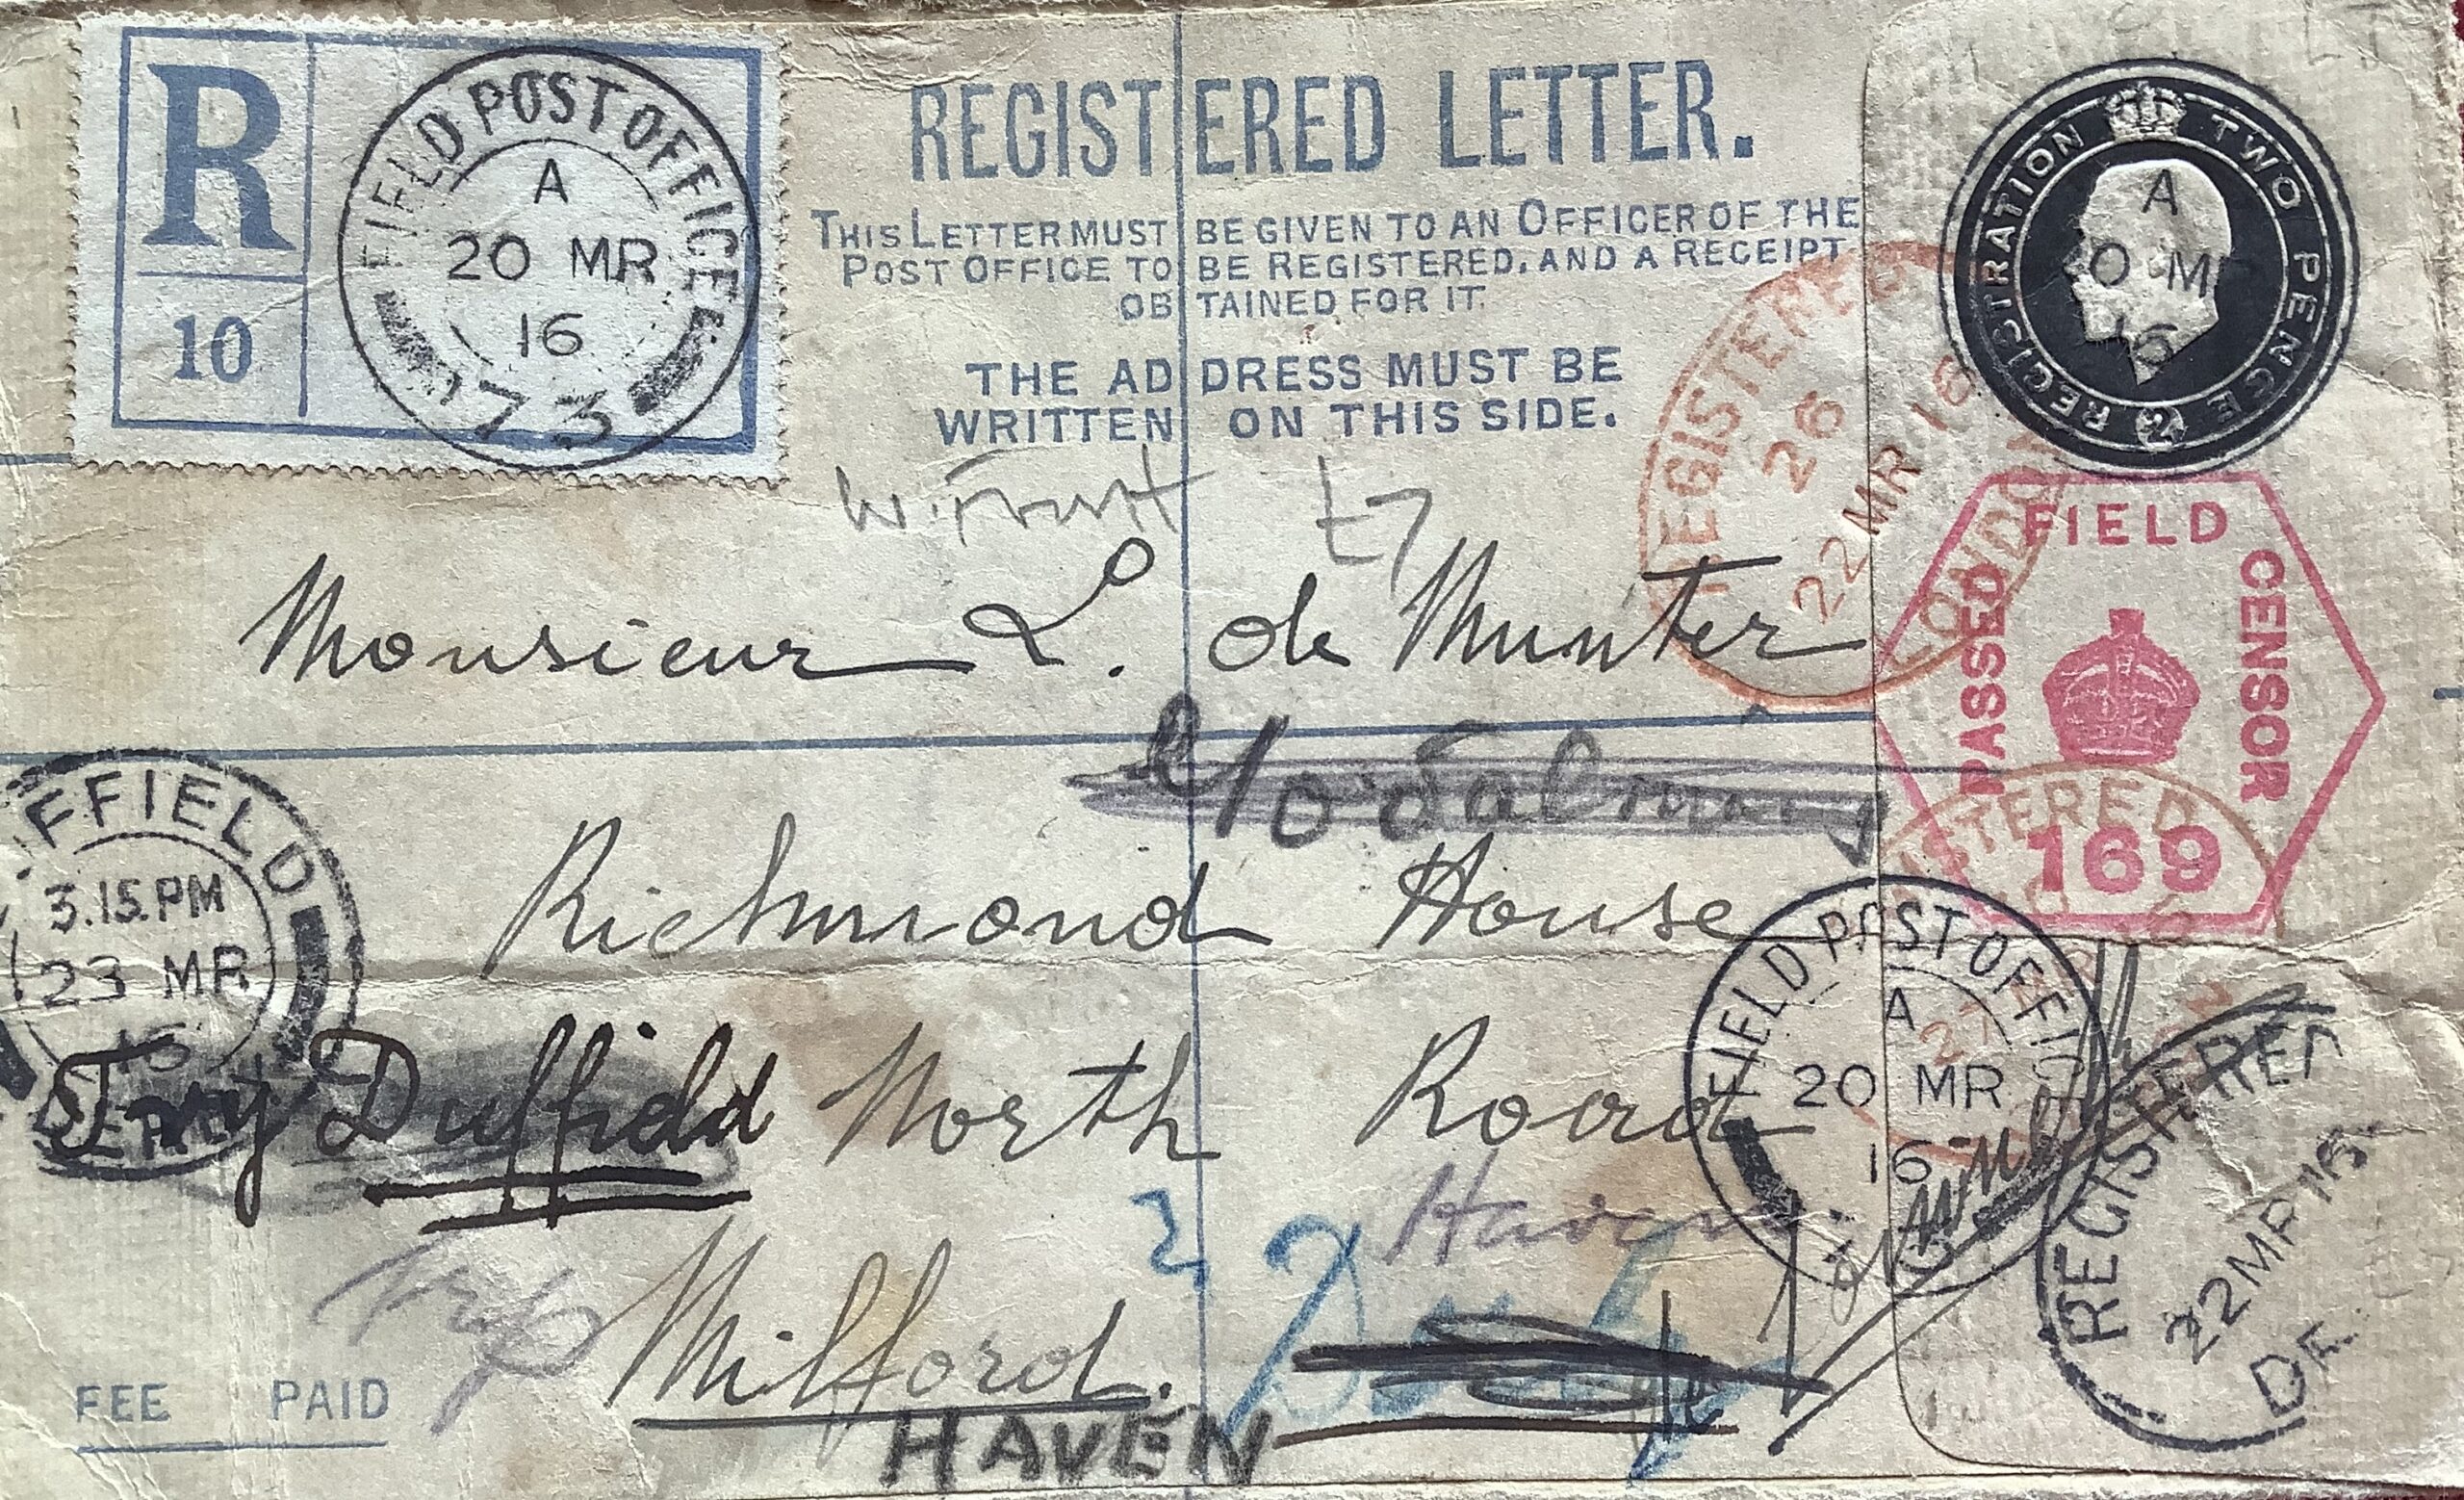 R
10
FIELD POST OFFICE
A
20 MR
16
73
REGISTERED LETTER.
THIS LETTER MUST BE GIVEN TO AN OFFICER OF THE
POST OFFICE TO BE REGISTERED, AND A RECEIPT
OBTAINED FOR IT.
THE ADDRESS MUST BE
WRITTEN ON THIS SIDE.
REGISTRATION TWO PENCE
2
A
0 M
16
REGISTERED
26
22 MR 16
LONDON
PASSED FIELD CENSOR
169
Monsieur L. de Munter
Godalming
Richmond House
FFIELD
3.15 PM
23 MR
16
Try Duffield North Road
ISTERED
27
FIELD POST OFFIC
A
20 MR
16
Haven
Try
Milford.
HAVEN
Derby
REGISTERED
22 MR 16
DE
FEE PAID